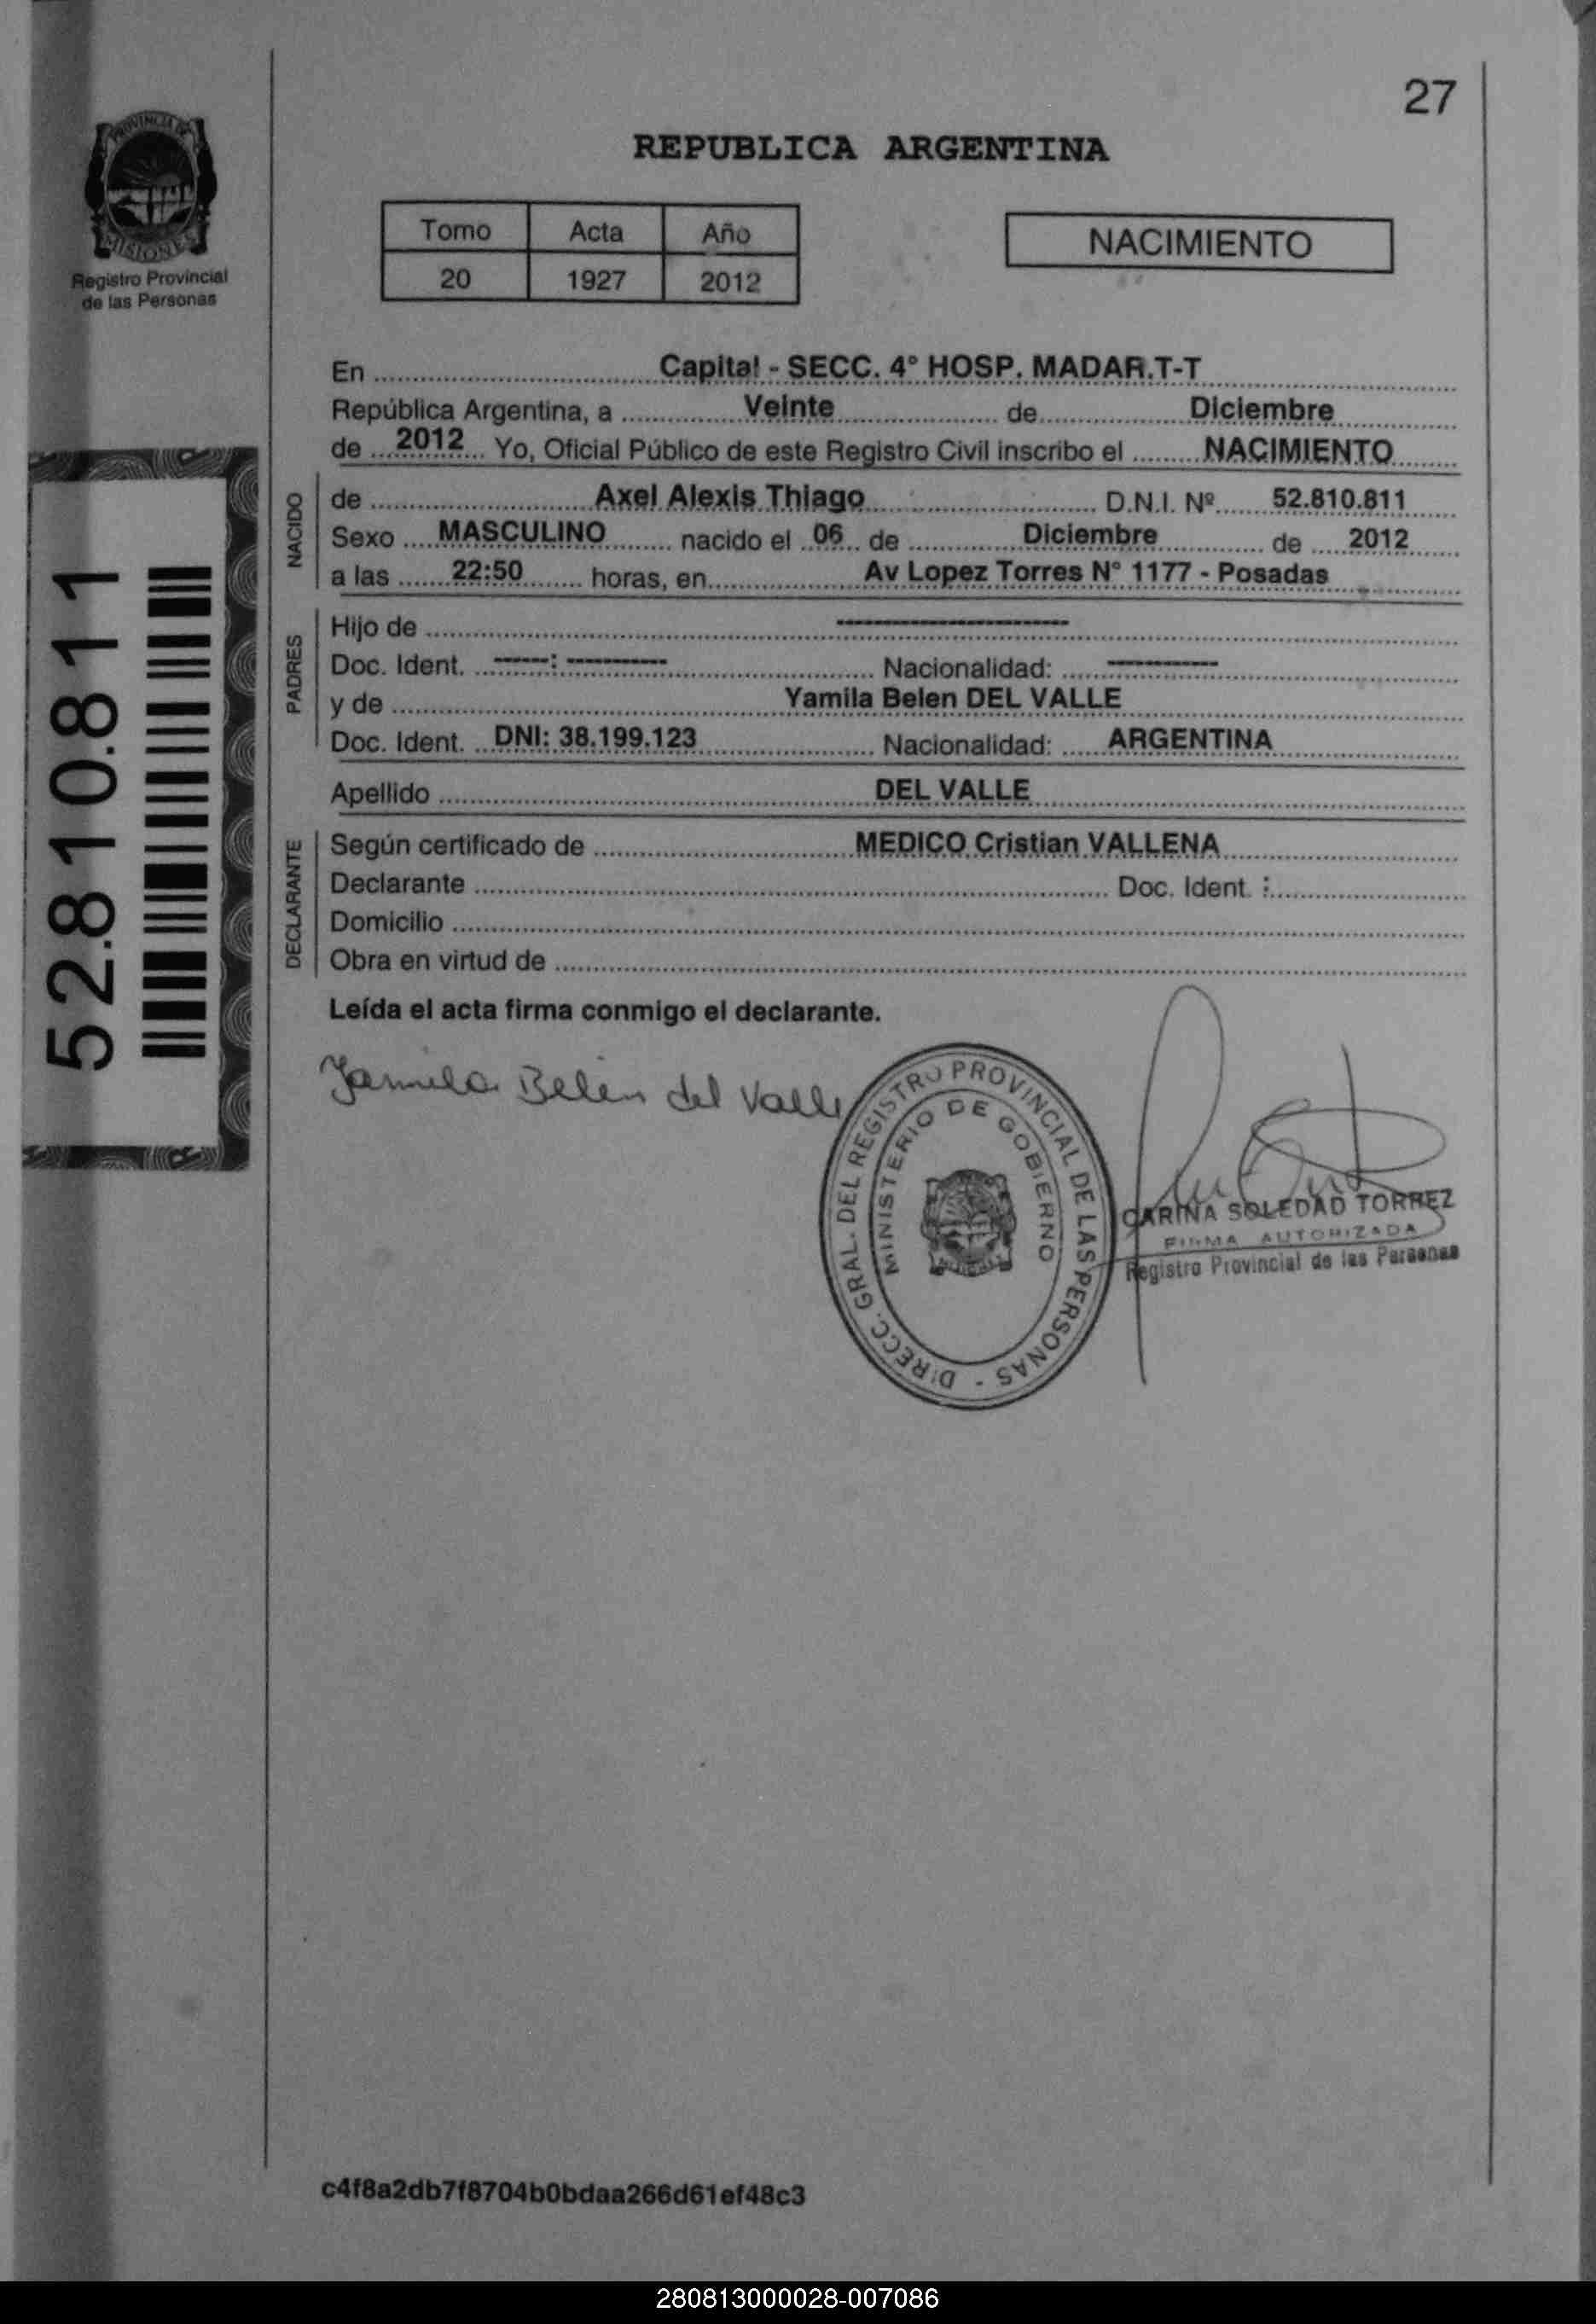 27
PROVINCIA DE
MISIONES
Registro Provincial
de las Personas
REPUBLICA ARGENTINA
Tomo Acta Año
20 1927 2012
NACIMIENTO
En Capital - SECC. 4° HOSP. MADAR.T-T
República Argentina, a Veinte de Diciembre
de 2012 Yo, Oficial Público de este Registro Civil inscribo el NACIMIENTO
NACIDO
de Axel Alexis Thiago D.N.I. Nº 52.810.811
Sexo MASCULINO nacido el 06 de Diciembre de 2012
a las 22:50 horas, en Av Lopez Torres N° 1177 - Posadas
PADRES
Hijo de ----------
Doc. Ident. -----: --------- Nacionalidad: ----------
y de Yamila Belen DEL VALLE
Doc. Ident. DNI: 38.199.123 Nacionalidad: ARGENTINA
Apellido DEL VALLE
DECLARANTE
Según certificado de MEDICO Cristian VALLENA
Declarante Doc. Ident. :
Domicilio
Obra en virtud de
Leída el acta firma conmigo el declarante.
52.810.811
Yamila Belen del Valle
DIRECC. GRAL. DEL REGISTRO PROVINCIAL DE LAS PERSONAS -
MINISTERIO DE GOBIERNO
CARINA SOLEDAD TORREZ
FIRMA AUTORIZADA
Registro Provincial de las Personas
c4f8a2db7f8704b0bdaa266d61ef48c3
280813000028-007086